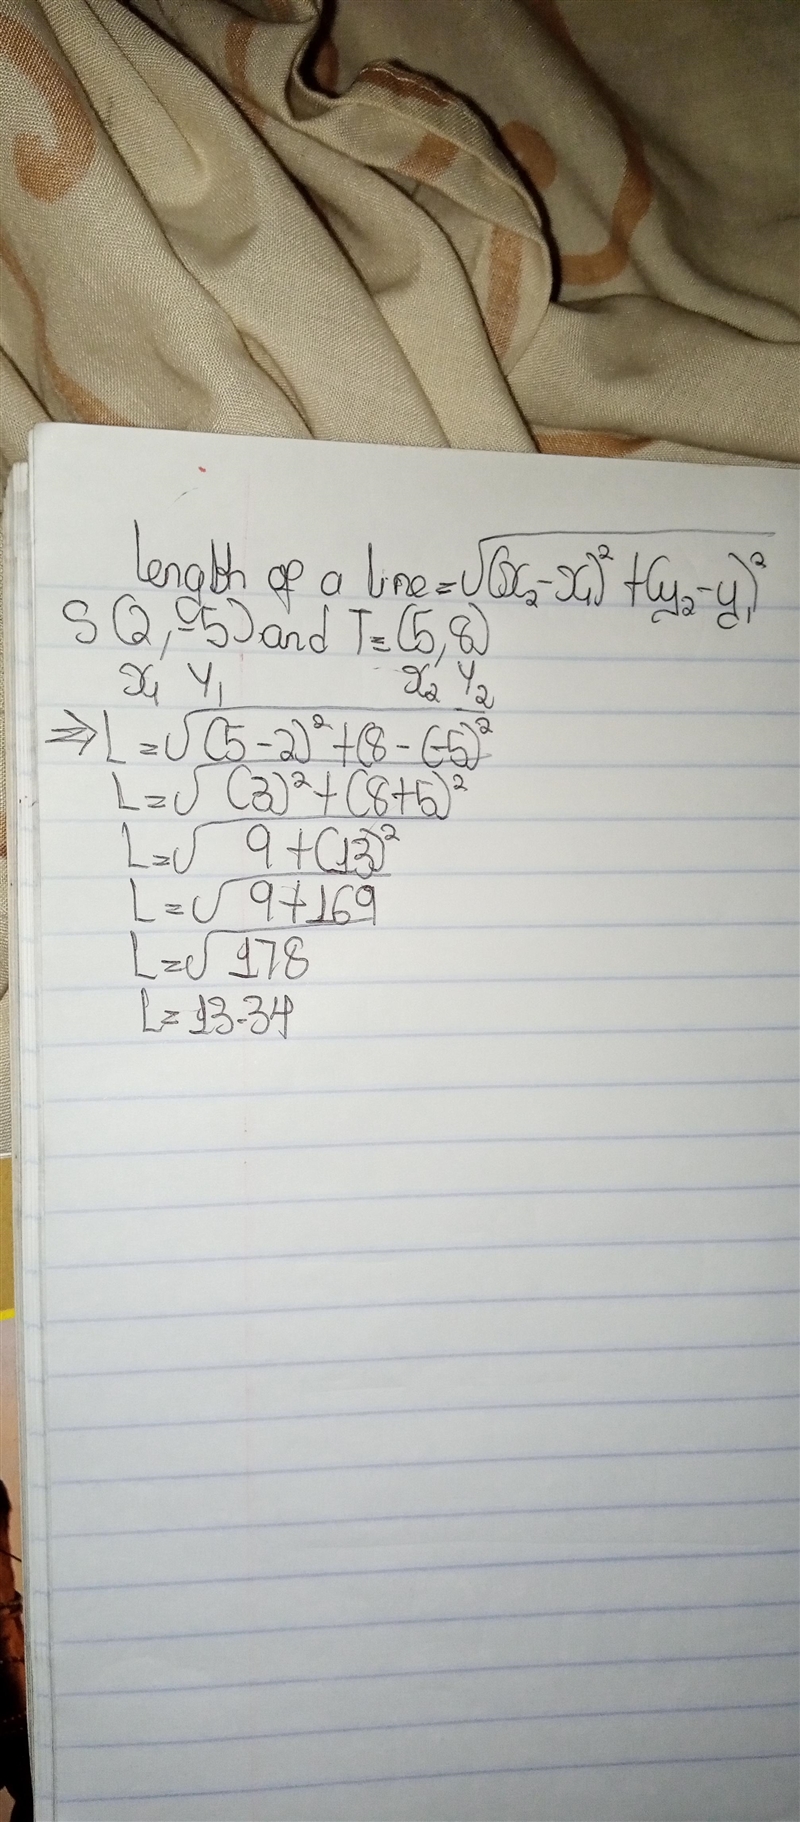 Length of a line = √(x₂-x₁)² + (y₂-y₁)²
S (2, -5) and T = (5, 8)
x₁ y₁ x₂ y₂
⇒ L = √(5-2)² + (8-(-5)²
L = √(3)² + (8+5)²
L = √9 + (13)²
L = √9+169
L = √178
L = 13.34